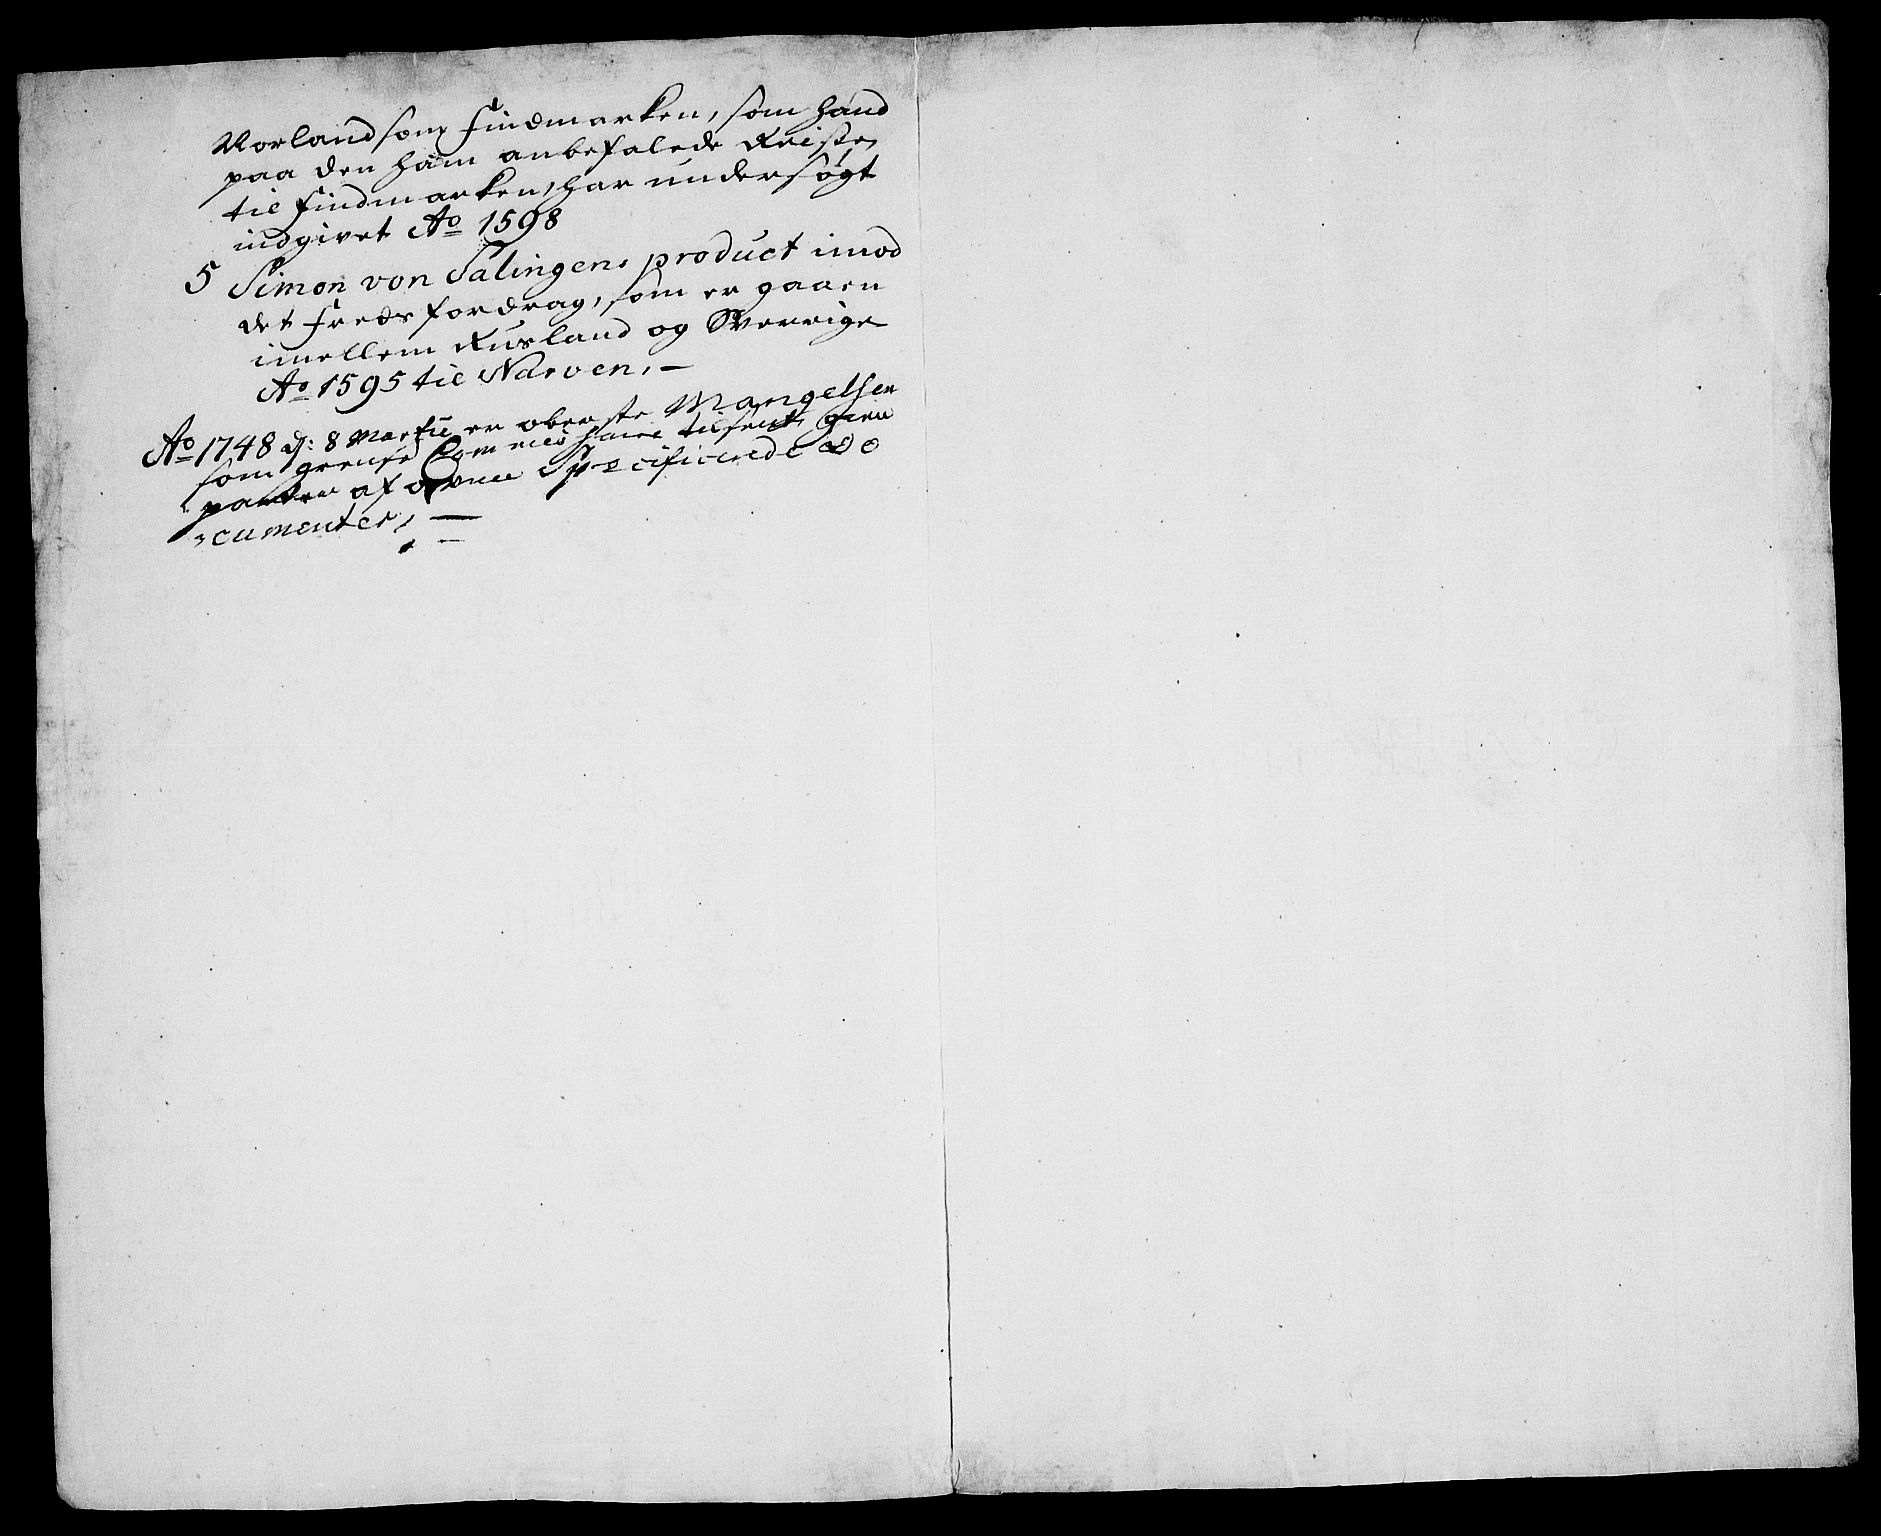 Norland som Findmarken, som hand
paa den ham anbefalede Reise
til Findmarken, har undersøgt
indgivet Ao 1598
5 Simon von Salingens product imod
det Freds fordrag, som er gaaen
imellem Rusland og Sverrige
Ao 1595 til Narven, —
Ao 1748 d: 8 Martii er oberste Mangelsen
som grense Com tilsent gien
parter af Specificerede Do
cumenter, —